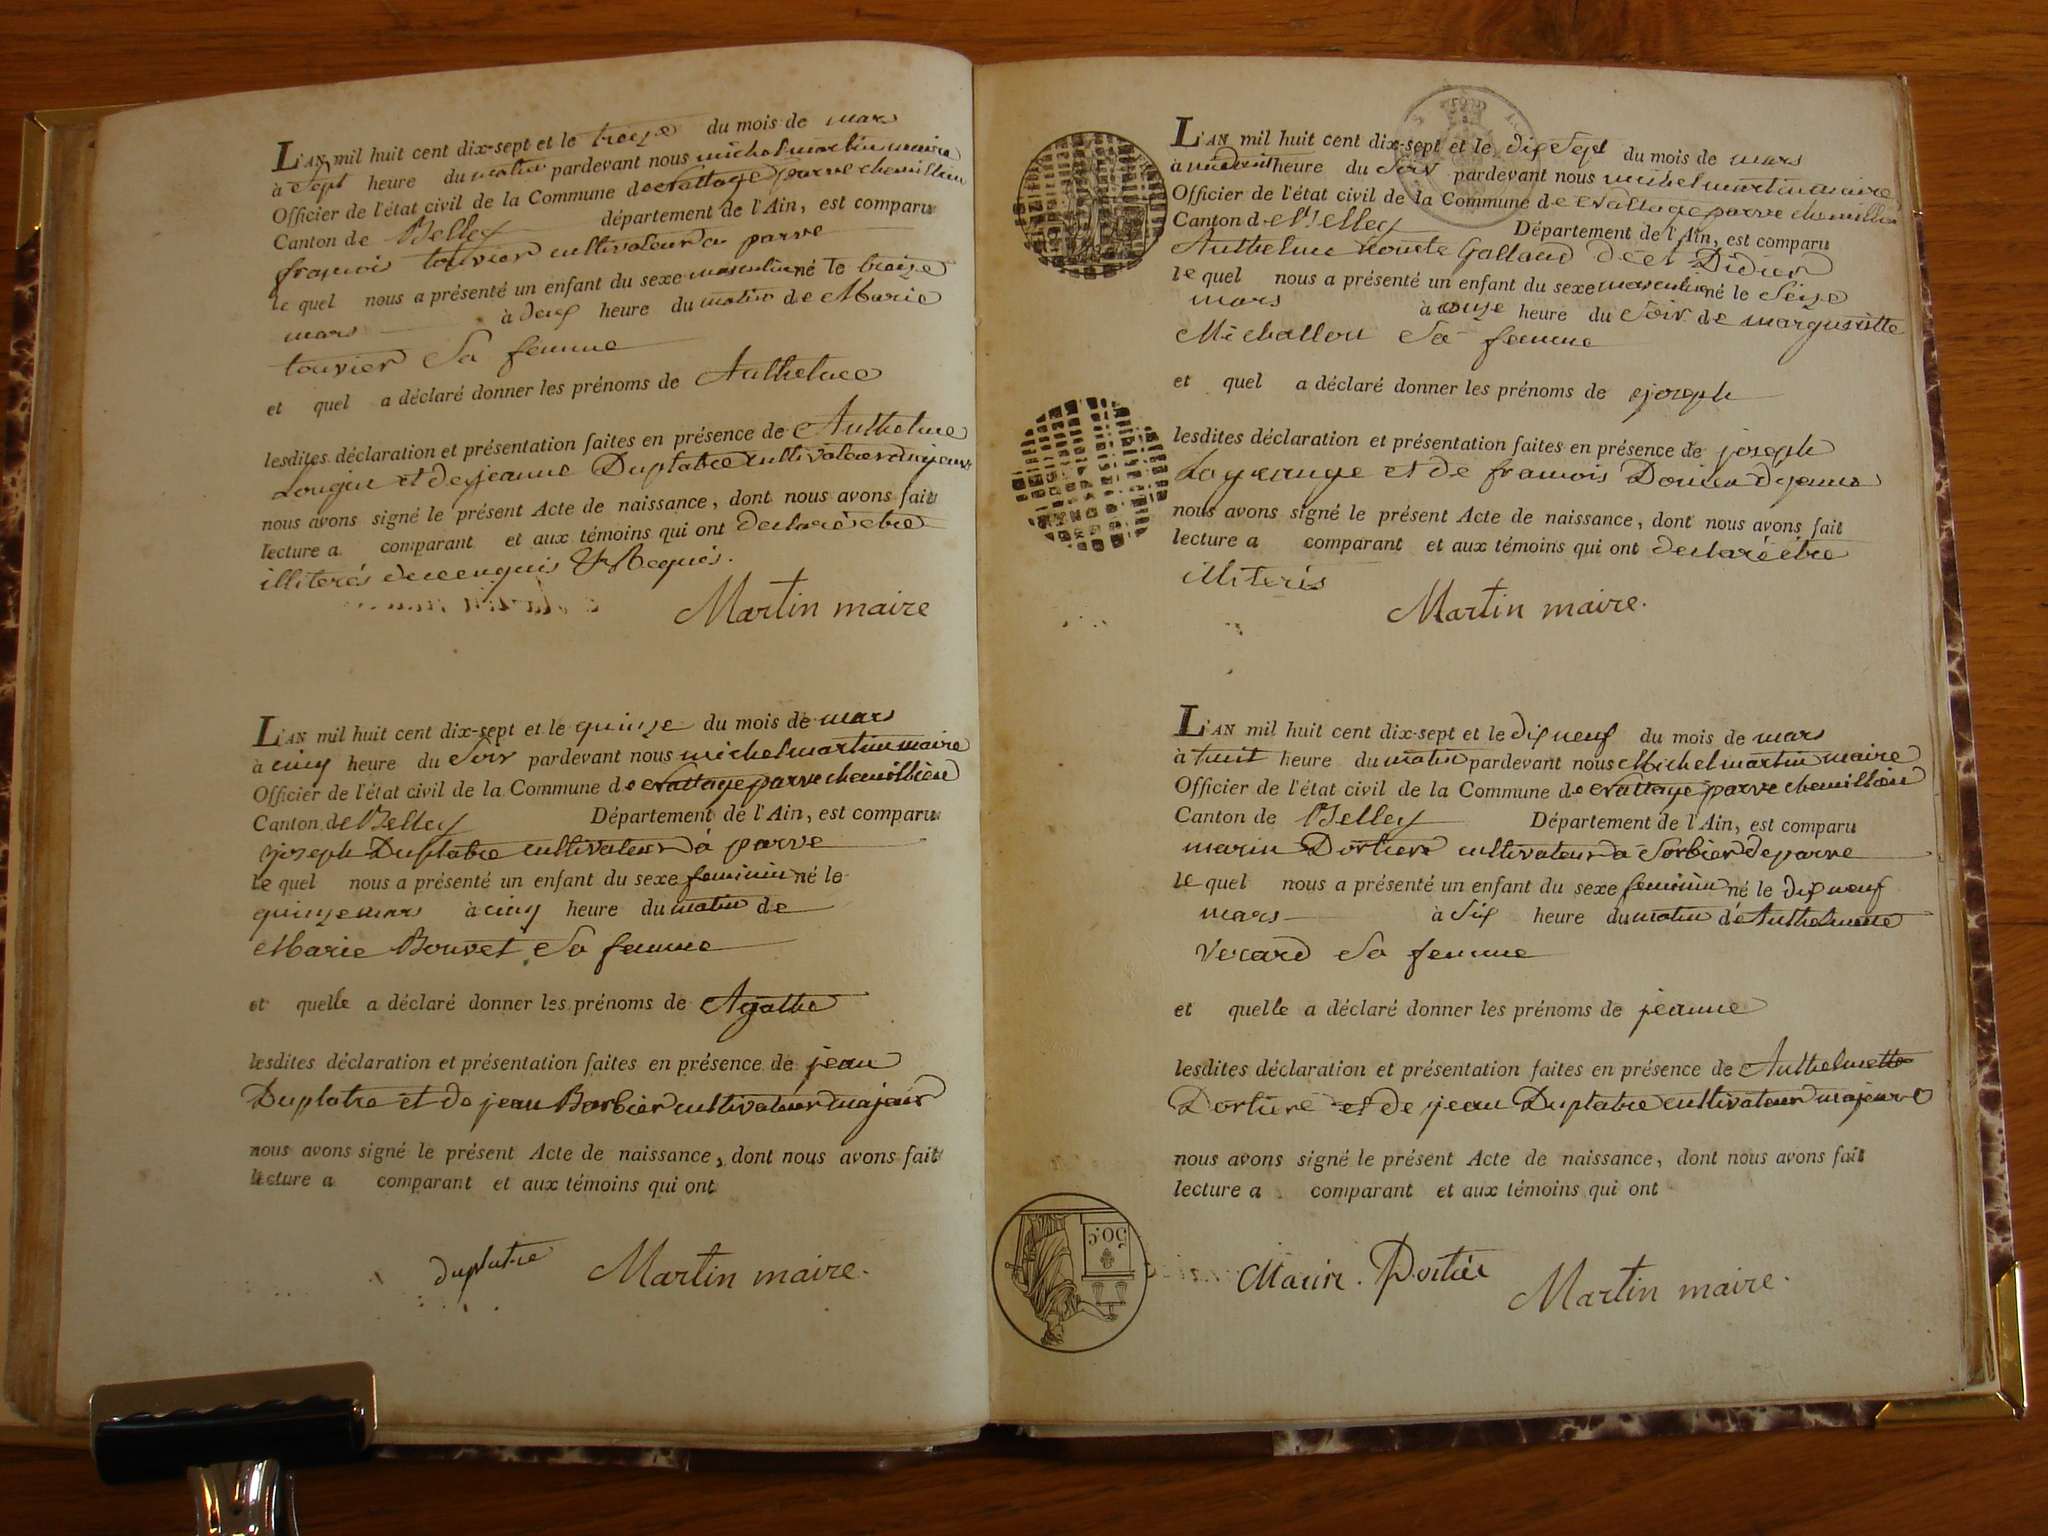 L'AN mil huit cent dix-sept et le treize du mois de mars
à Sept heure du matin pardevant nous michel martin maire
Officier de l'état civil de la Commune de parve chemillieu
Canton de Belley département de l'Ain, est comparu
françois touvier cultivateur a parve
le quel nous a présenté un enfant du sexe masculin né le treize
mars à deux heure du matin de Marie
touvier Sa femme
et quel a déclaré donner les prénoms de Anthelme
lesdites déclaration et présentation faites en présence de Anthelme
Longin et de jeanne Duplatre cultivateur majeurs
nous avons signé le présent Acte de naissance, dont nous avons fait
lecture a comparant et aux témoins qui ont declaré être
illiterés de ce enquis & Requis.
Martin maire
L'AN mil huit cent dix-sept et le quinze du mois de mars
à cinq heure du Soir pardevant nous michel martin maire
Officier de l'état civil de la Commune de parve chemillieu
Canton de Belley Département de l'Ain, est comparu
joseph Duplatre cultivateur à parve
le quel nous a présenté un enfant du sexe feminin né le
quinze mars à cinq heure du matin de
Marie Bouvet Sa femme
et quelle a déclaré donner les prénoms de Agathe
lesdites déclaration et présentation faites en présence de jean
Duplatre et de jean Barbier cultivateur majeur
nous avons signé le présent Acte de naissance, dont nous avons fait
lecture a comparant et aux témoins qui ont
duplatre Martin maire.
L'AN mil huit cent dix-sept et le dix Sept du mois de mars
à heure du Soir pardevant nous michel martin maire
Officier de l'état civil de la Commune de parve chemillieu
Canton de Belley Département de l'Ain, est comparu
Anthelme Galland Didier
le quel nous a présenté un enfant du sexe masculin né le Seize
mars à onze heure du Soir de margueritte
Michallon Sa femme
et quel a déclaré donner les prénoms de joseph
lesdites déclaration et présentation faites en présence de joseph
Lagrange et de francois
nous avons signé le présent Acte de naissance, dont nous avons fait
lecture a comparant et aux témoins qui ont declaré être
illiterés
Martin maire.
L'AN mil huit cent dix-sept et le dix neuf du mois de mars
à huit heure du matin pardevant nous Michel martin maire
Officier de l'état civil de la Commune de parve chemillieu
Canton de Belley Département de l'Ain, est comparu
marin Dortier cultivateur a Sorbier de parve
le quel nous a présenté un enfant du sexe feminin né le dix neuf
mars à Six heure du matin de Anthelmette
Verard Sa femme
et quelle a déclaré donner les prénoms de jeanne
lesdites déclaration et présentation faites en présence de Anthelmette
et de jean Duplatre cultivateur majeure
nous avons signé le présent Acte de naissance, dont nous avons fait
lecture a comparant et aux témoins qui ont
50.C
Martin maire.